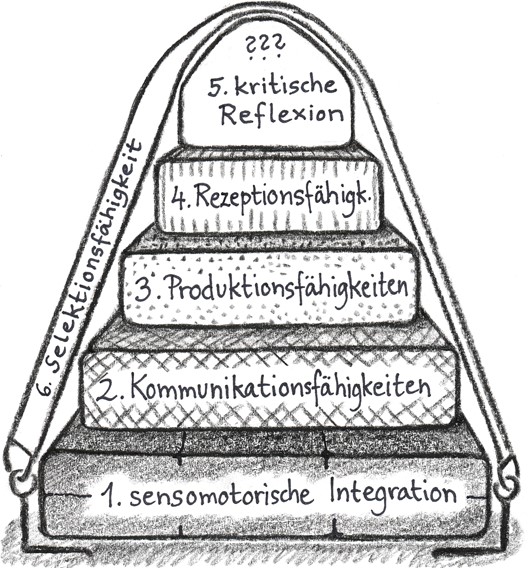 ???
5. kritische
Reflexion
4. Rezeptionsfähigk.
3. Produktionsfähigkeiten
2. Kommunikationsfähigkeiten
1. sensomotorische Integration
6. Selektionsfähigkeit